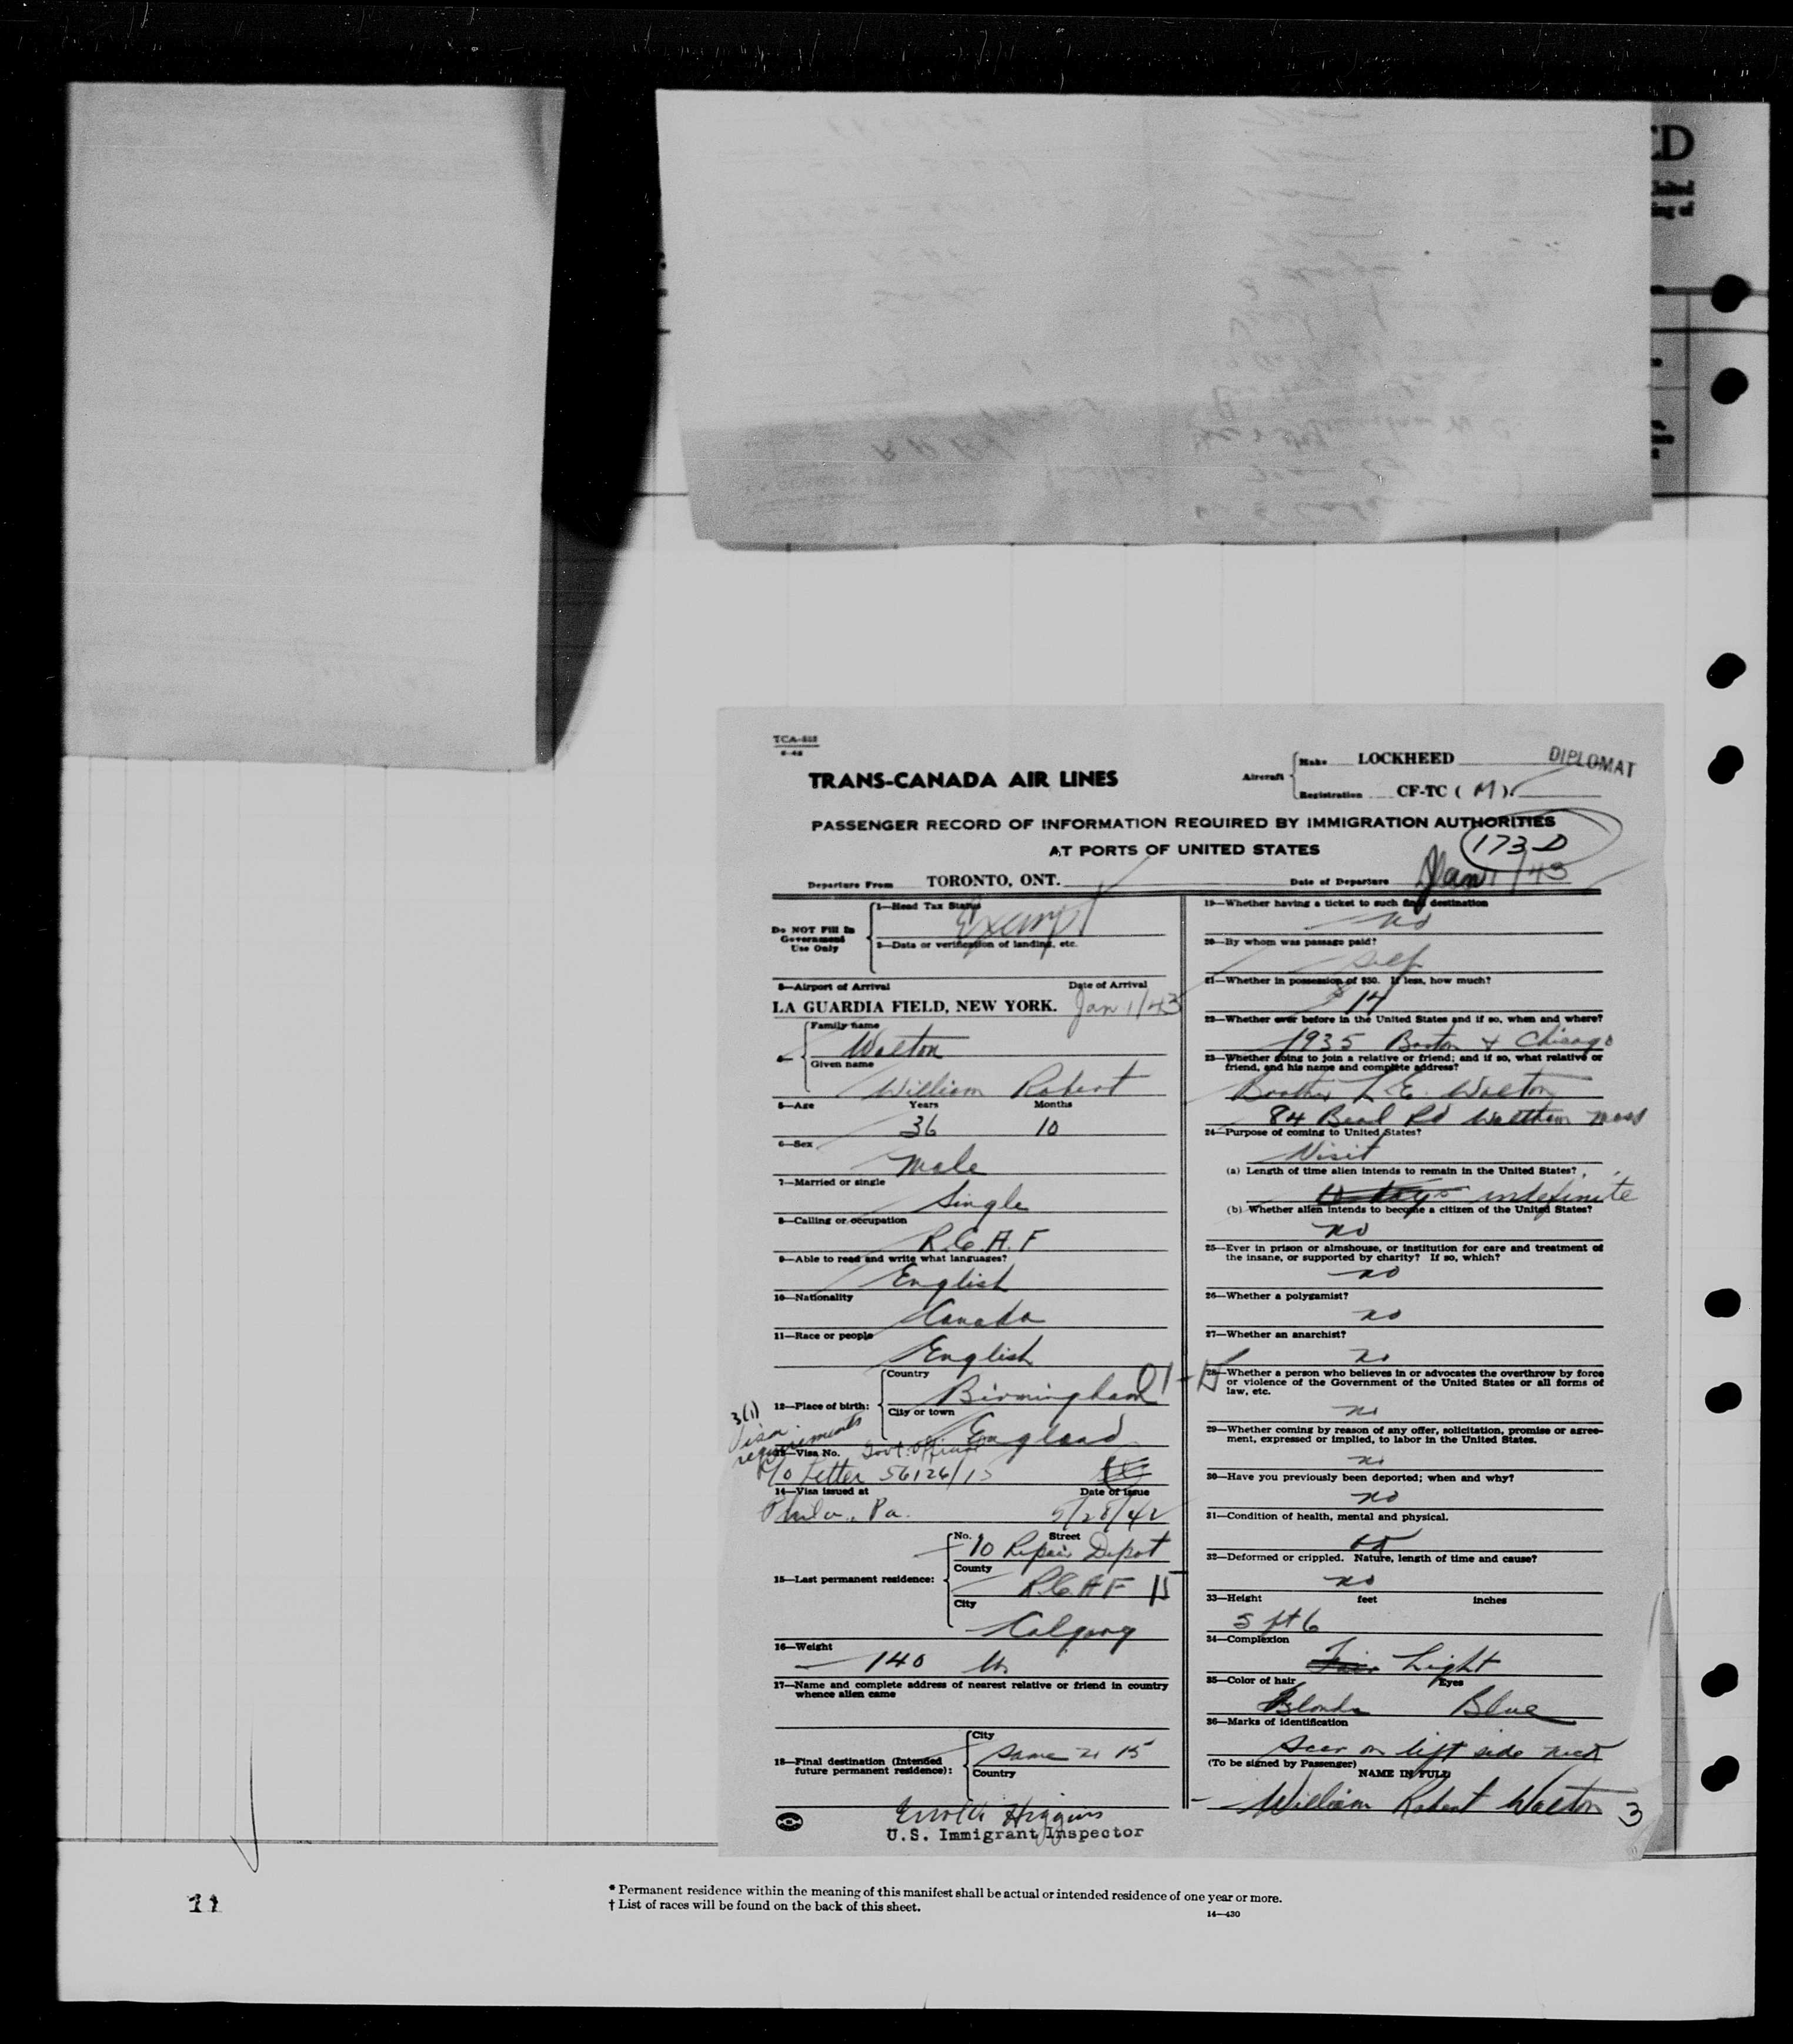 TCA-515
TRANS-CANADA AIR LINES
Aircraft
Make LOCKHEED
DIPLOMAT
Registration CF-TC ( M )
PASSENGER RECORD OF INFORMATION REQUIRED BY IMMIGRATION AUTHORITIES
AT PORTS OF UNITED STATES
173 D
Departure From TORONTO, ONT.
Date of Departure Jan 1/43
Do NOT Fill In
Government
Use Only
1—Head Tax Status
Exempt
2—Data or verification of landing, etc.
3—Airport of Arrival Date of Arrival
LA GUARDIA FIELD, NEW YORK. Jan 1/43
4—
Family name
Walton
Given name
William Robert
5—Age Years Months
36 10
6—Sex
Male
7—Married or single
Single
8—Calling or occupation
R.C.A.F
9—Able to read and write what languages?
English
10—Nationality
Canada
11—Race or people
English
12—Place of birth:
Country
Birmingham
City or town
England
3(1)
Visa
requirements
13—Visa No. Govt. Official
Letter 56126/15
14—Visa issued at Date of Issue
Phila., Pa. 5/28/42
15—Last permanent residence:
No. Street
10 Repair Depot
County
R.C.A.F 15
City
Calgary
16—Weight
140 lbs
17—Name and complete address of nearest relative or friend in country
whence alien came
18—Final destination (Intended
future permanent residence):
City
Same 15
Country
Higgins
U.S. Immigrant Inspector
19—Whether having a ticket to such final destination
no
20—By whom was passage paid?
Self
21—Whether in possession of $50. If less, how much?
$ 14
22—Whether ever before in the United States and if so, when and where?
1935 Boston & Chicago
23—Whether going to join a relative or friend; and if so, what relative or
friend, and his name and complete address?
Brother L.E. Walton
84 Beal Rd Waltham Mass
24—Purpose of coming to United States?
Visit
(a) Length of time alien intends to remain in the United States?
10 days indefinite
(b) Whether alien intends to become a citizen of the United States?
no
25—Ever in prison or almshouse, or institution for care and treatment of
the insane, or supported by charity? If so, which?
no
26—Whether a polygamist?
no
27—Whether an anarchist?
no
28—Whether a person who believes in or advocates the overthrow by force
or violence of the Government of the United States or all forms of
law, etc.
no
29—Whether coming by reason of any offer, solicitation, promise or agree-
ment, expressed or implied, to labor in the United States.
no
30—Have you previously been deported; when and why?
no
31—Condition of health, mental and physical.
ok
32—Deformed or crippled. Nature, length of time and cause?
no
33—Height feet inches
5 ft 6
34—Complexion
Fair Light
35—Color of hair Eyes
Blonde Blue
36—Marks of identification
Scar on left side neck
(To be signed by Passenger)
NAME IN FULL
William Robert Walton 3
11
* Permanent residence within the meaning of this manifest shall be actual or intended residence of one year or more.
† List of races will be found on the back of this sheet.
14—430